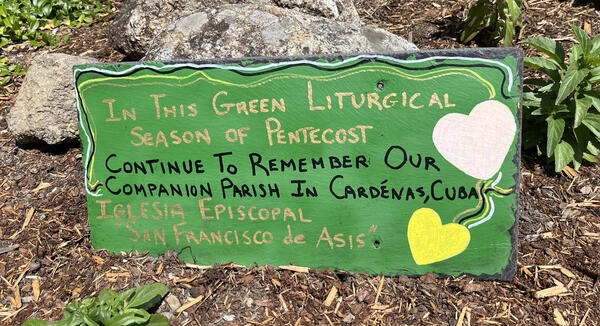 In This Green Liturgical
Season of Pentecost
Continue To Remember Our
Companion Parish In Cardénas, Cuba
Iglesia Episcopal
"San Francisco de Asis"